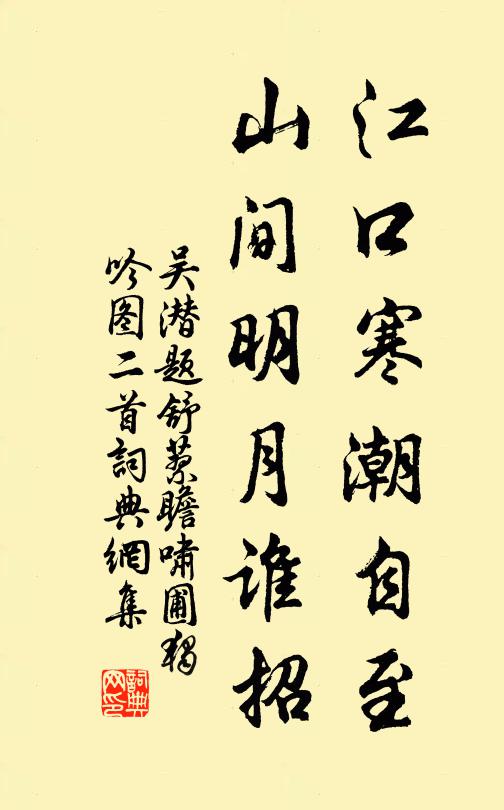 江口寒潮自至
山间明月谁招
吴潜题舒蓼瞻啸圃独
吟图二首词典網集
詞典网印